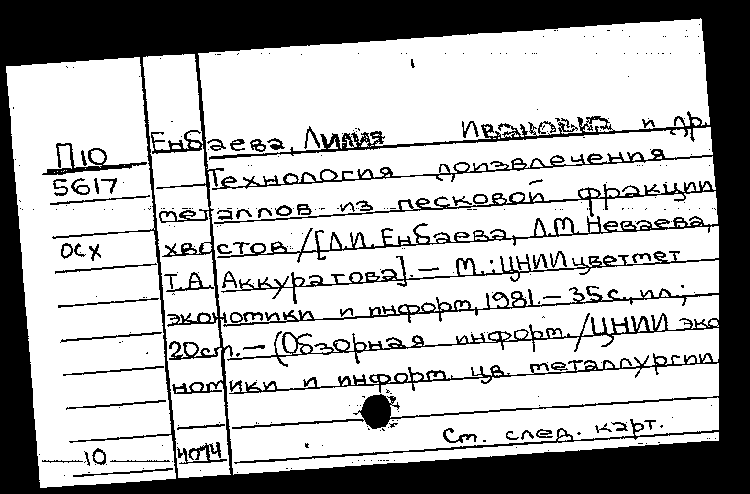 П10
5617
осх
Енбаева, Лилия Ивановна и др.
Технология доизвлечения
металлов из песковой фракции
хвостов /[Л.И. Енбаева, Л.М. Неваева,
Т.А. Аккуратова]. — М.: ЦНИИцветмет
экономики и информ, 1981. — 35 с., ил.;
20см. — (Обзорная информ. /ЦНИИ эко
номики и информ. цв. металлургии
См. след. карт.
10